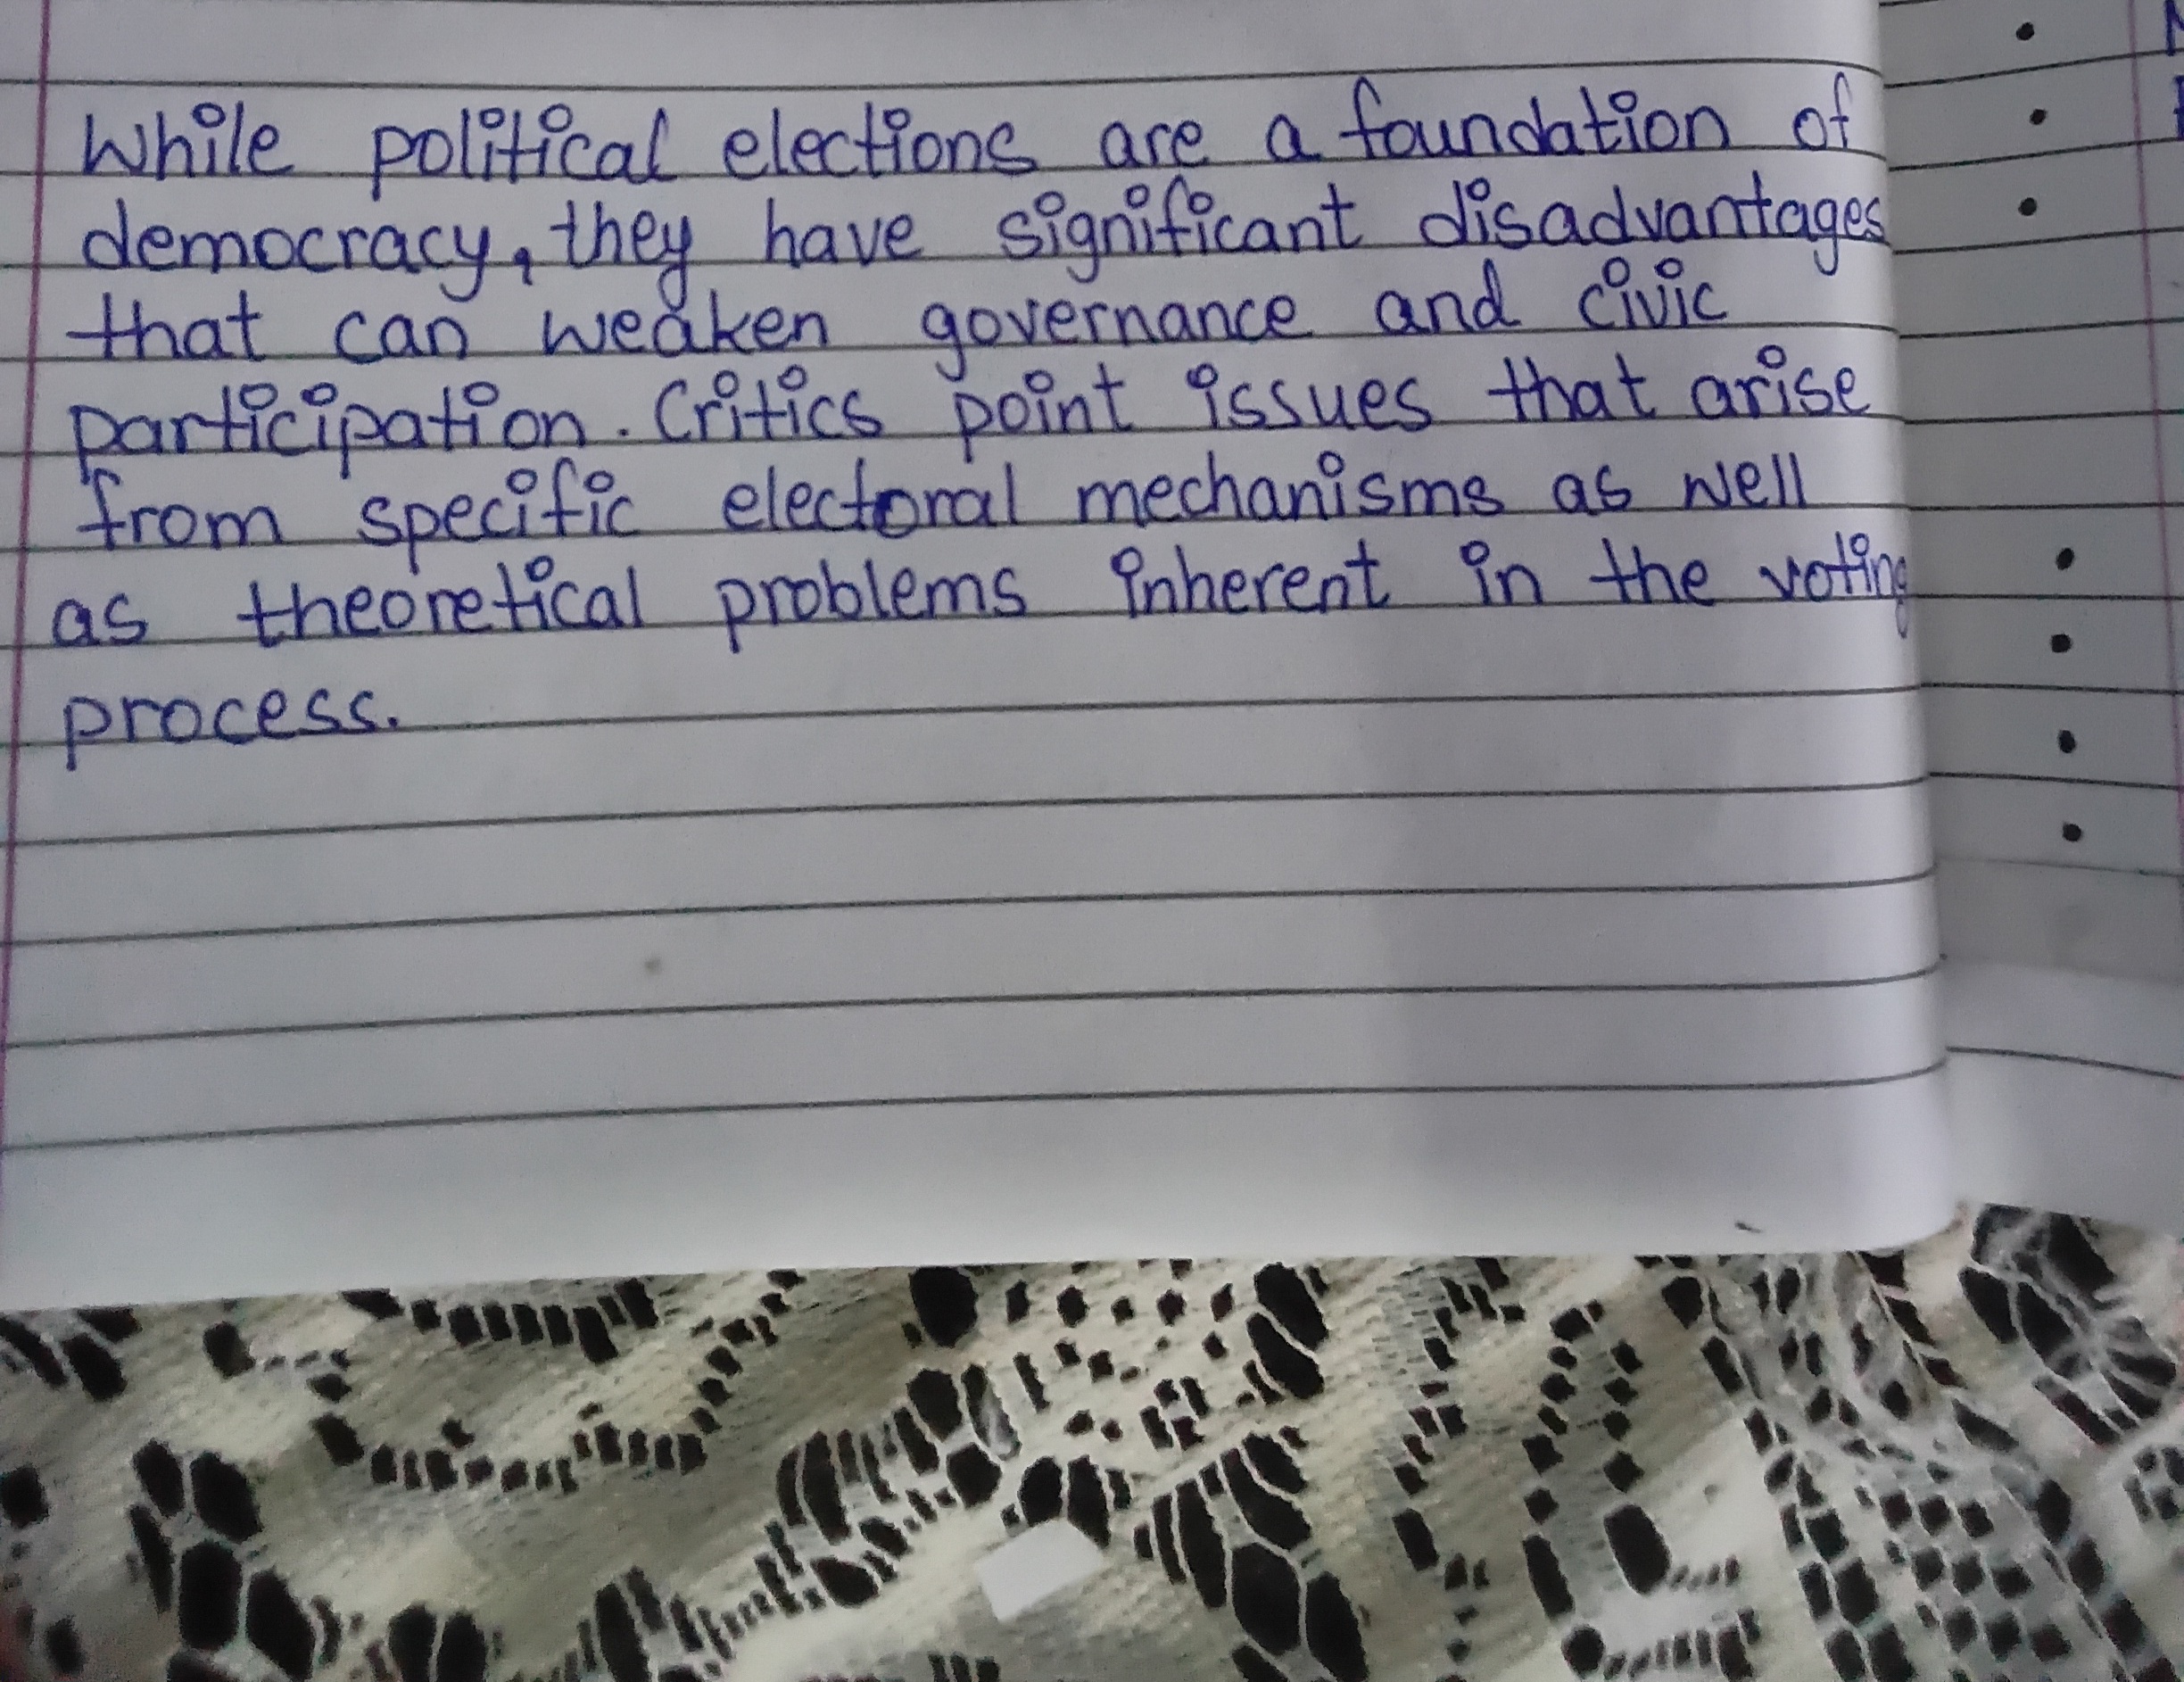 While political elections are a foundation of
democracy, they have significant disadvantages
that can weaken governance and civic
participation. Critics point issues that arise
from specific electoral mechanisms as well
as theoretical problems inherent in the voting
process.